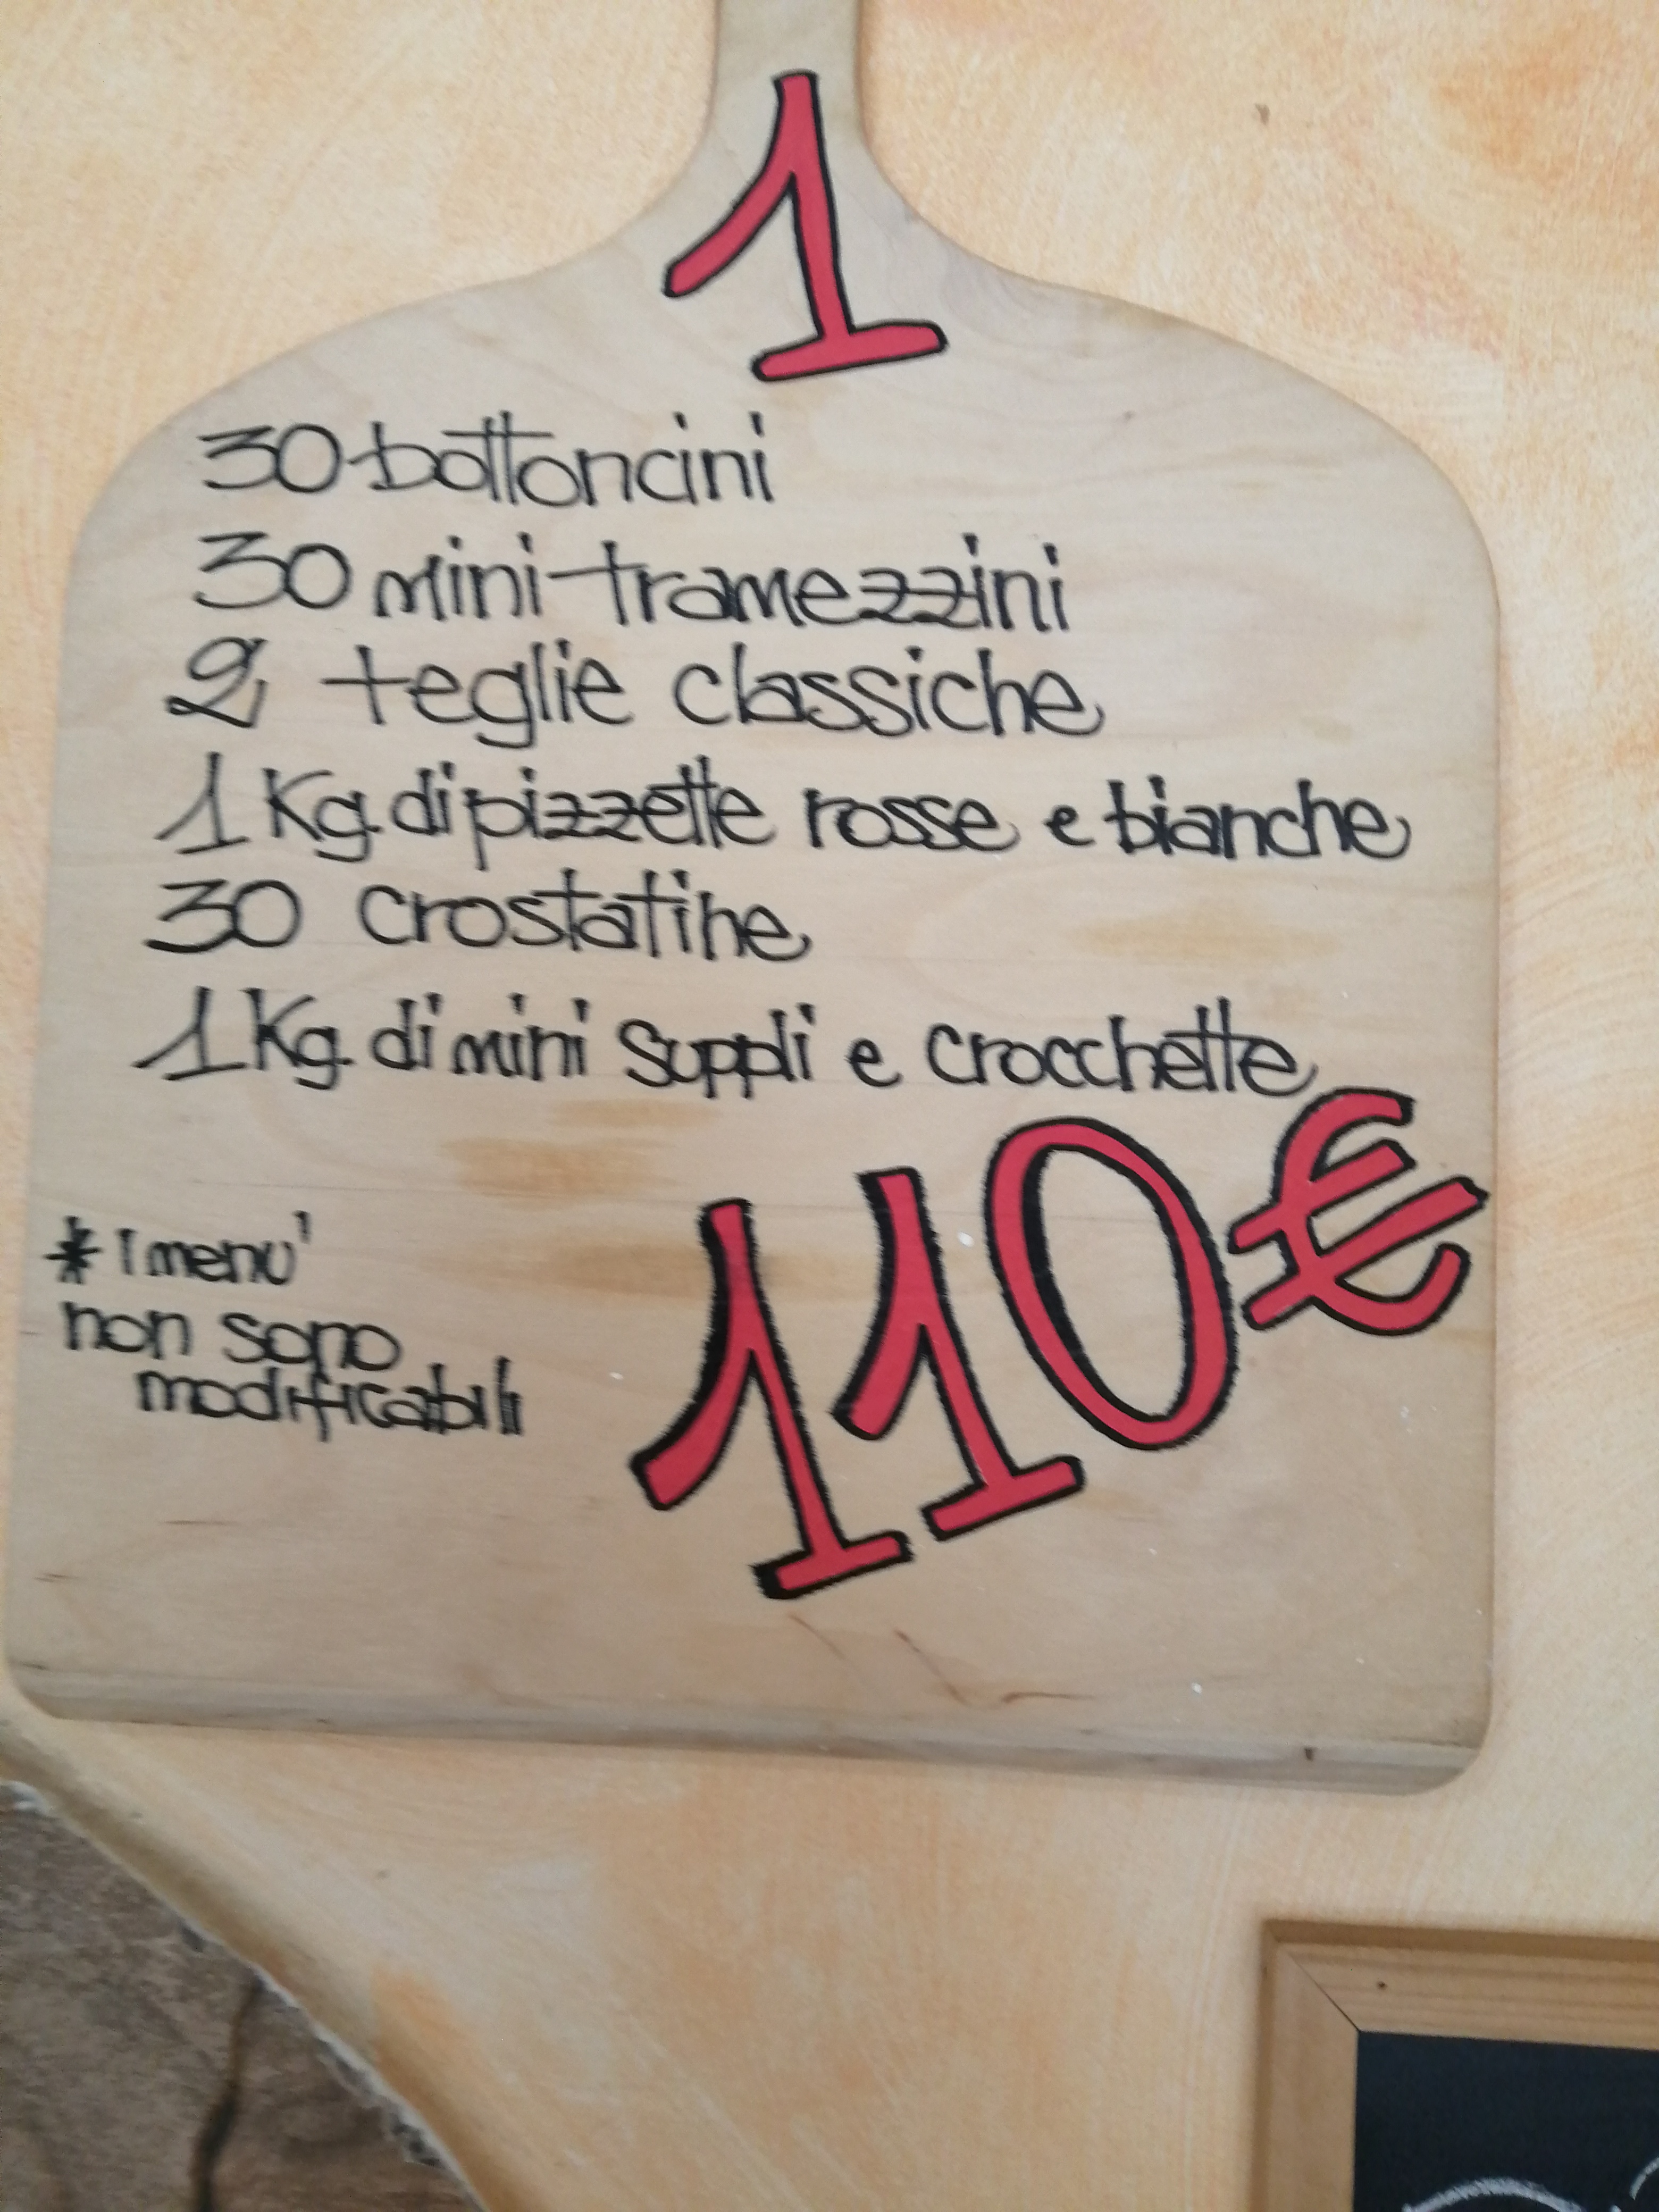 1
30 bottoncini
30 mini tramezzini
2 teglie classiche
1 Kg. di pizzette rosse e bianche
30 crostatine
1 Kg. di mini supplì e crocchette
110€
* I menu'
non sono
modificabili